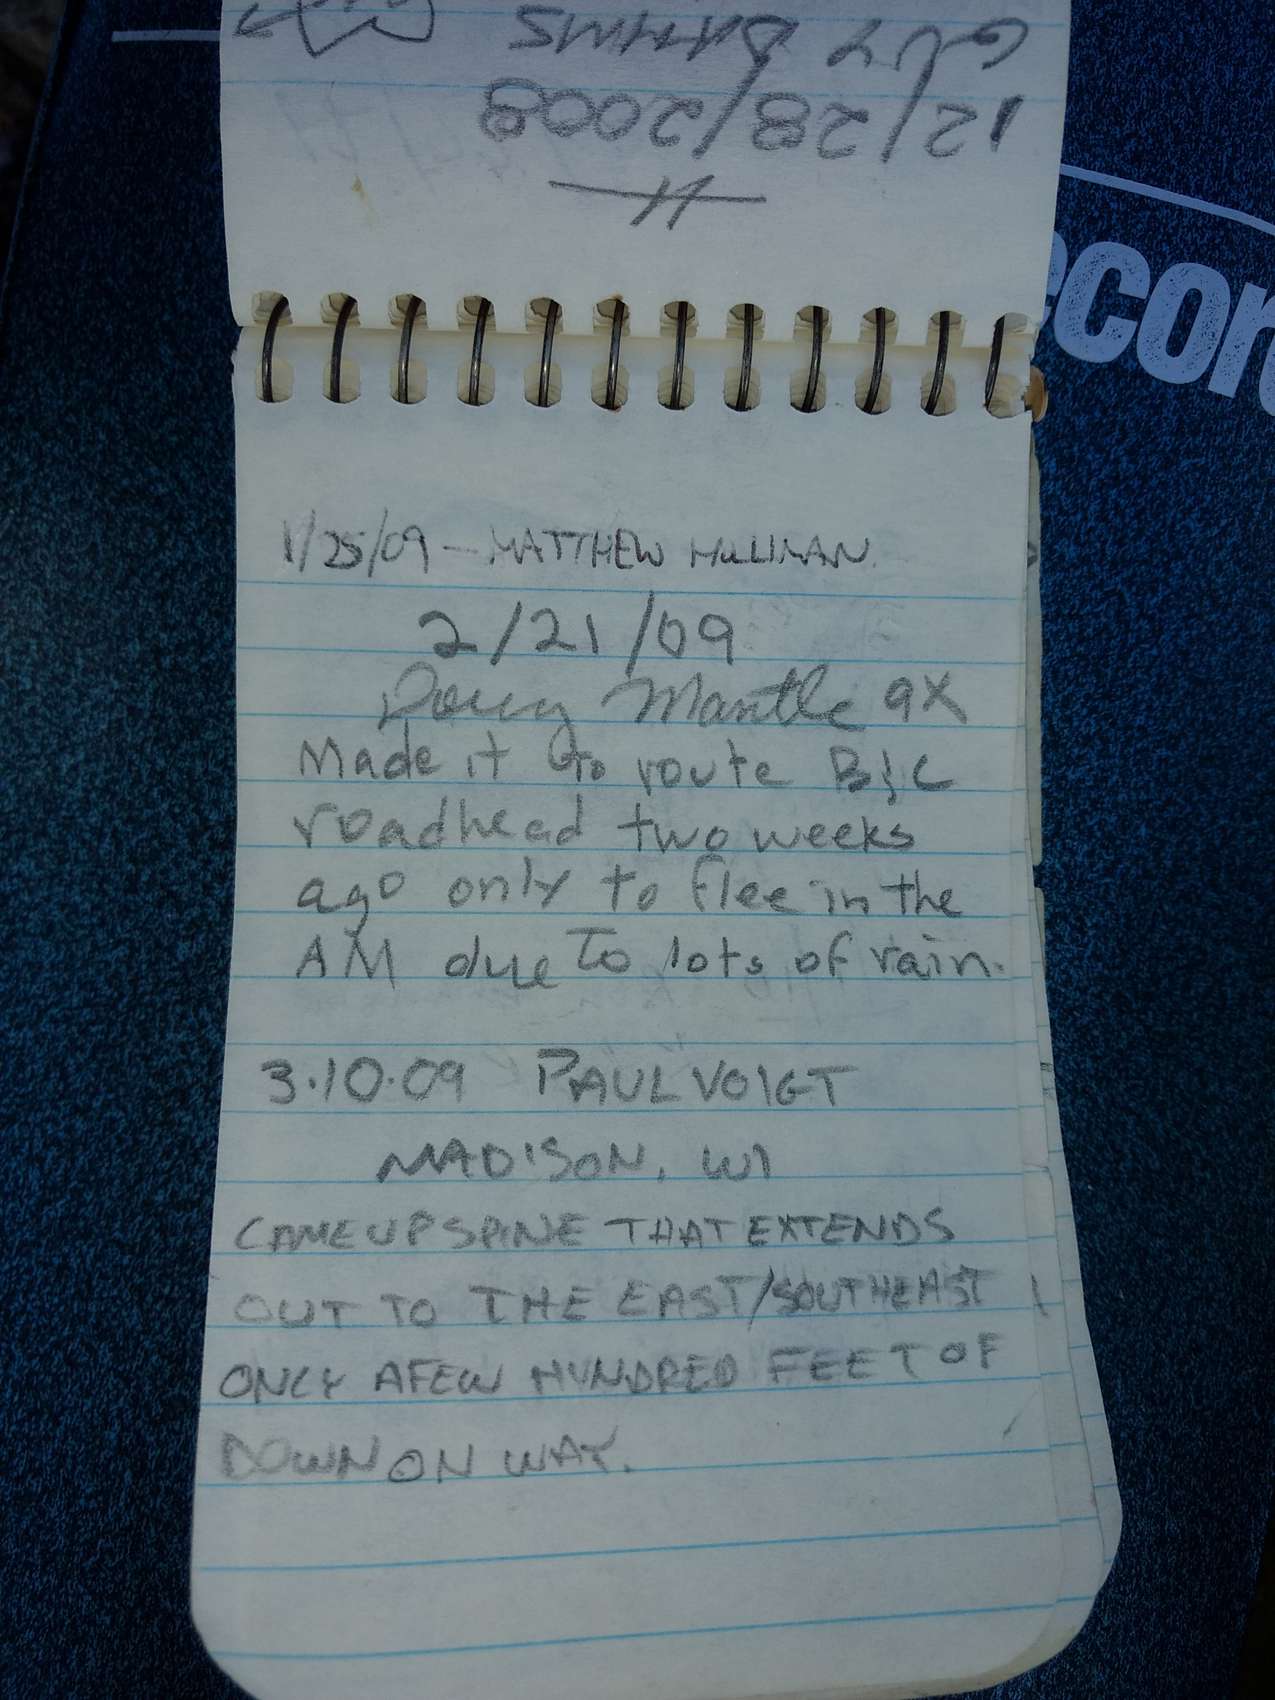 GUY DAHMS
12/28/2008
1/25/09 — MATTHEW HOLLIMAN
2/21/09
Doug Mantle 9X
Made it to route B&C
roadhead two weeks
ago only to flee in the
AM due to lots of rain.
3.10.09 PAUL VOIGT
MADISON, WI
CAME UP SPINE THAT EXTENDS
OUT TO THE EAST/SOUTHEAST
ONLY A FEW HUNDRED FEET OF
DOWN ON WAY.
econ